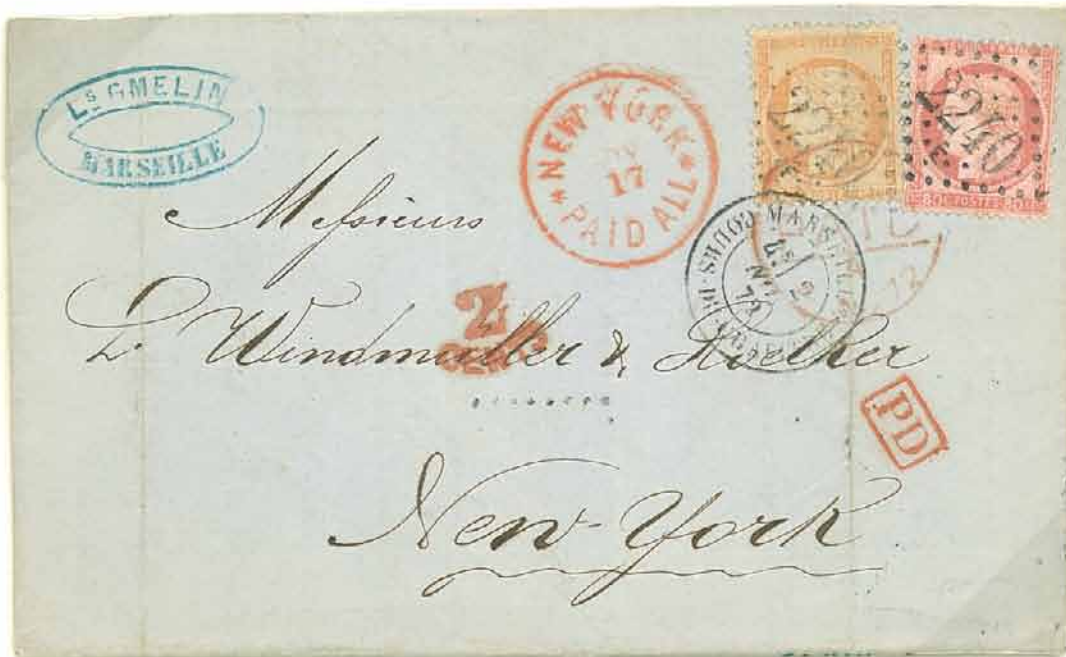 Ls GMELIN
MARSEILLE
NEW YORK
17
PAID ALL
2240
Messieurs
MARSEILLE
2
CENTS
L. Windmuller & Roelker
PD
New-York